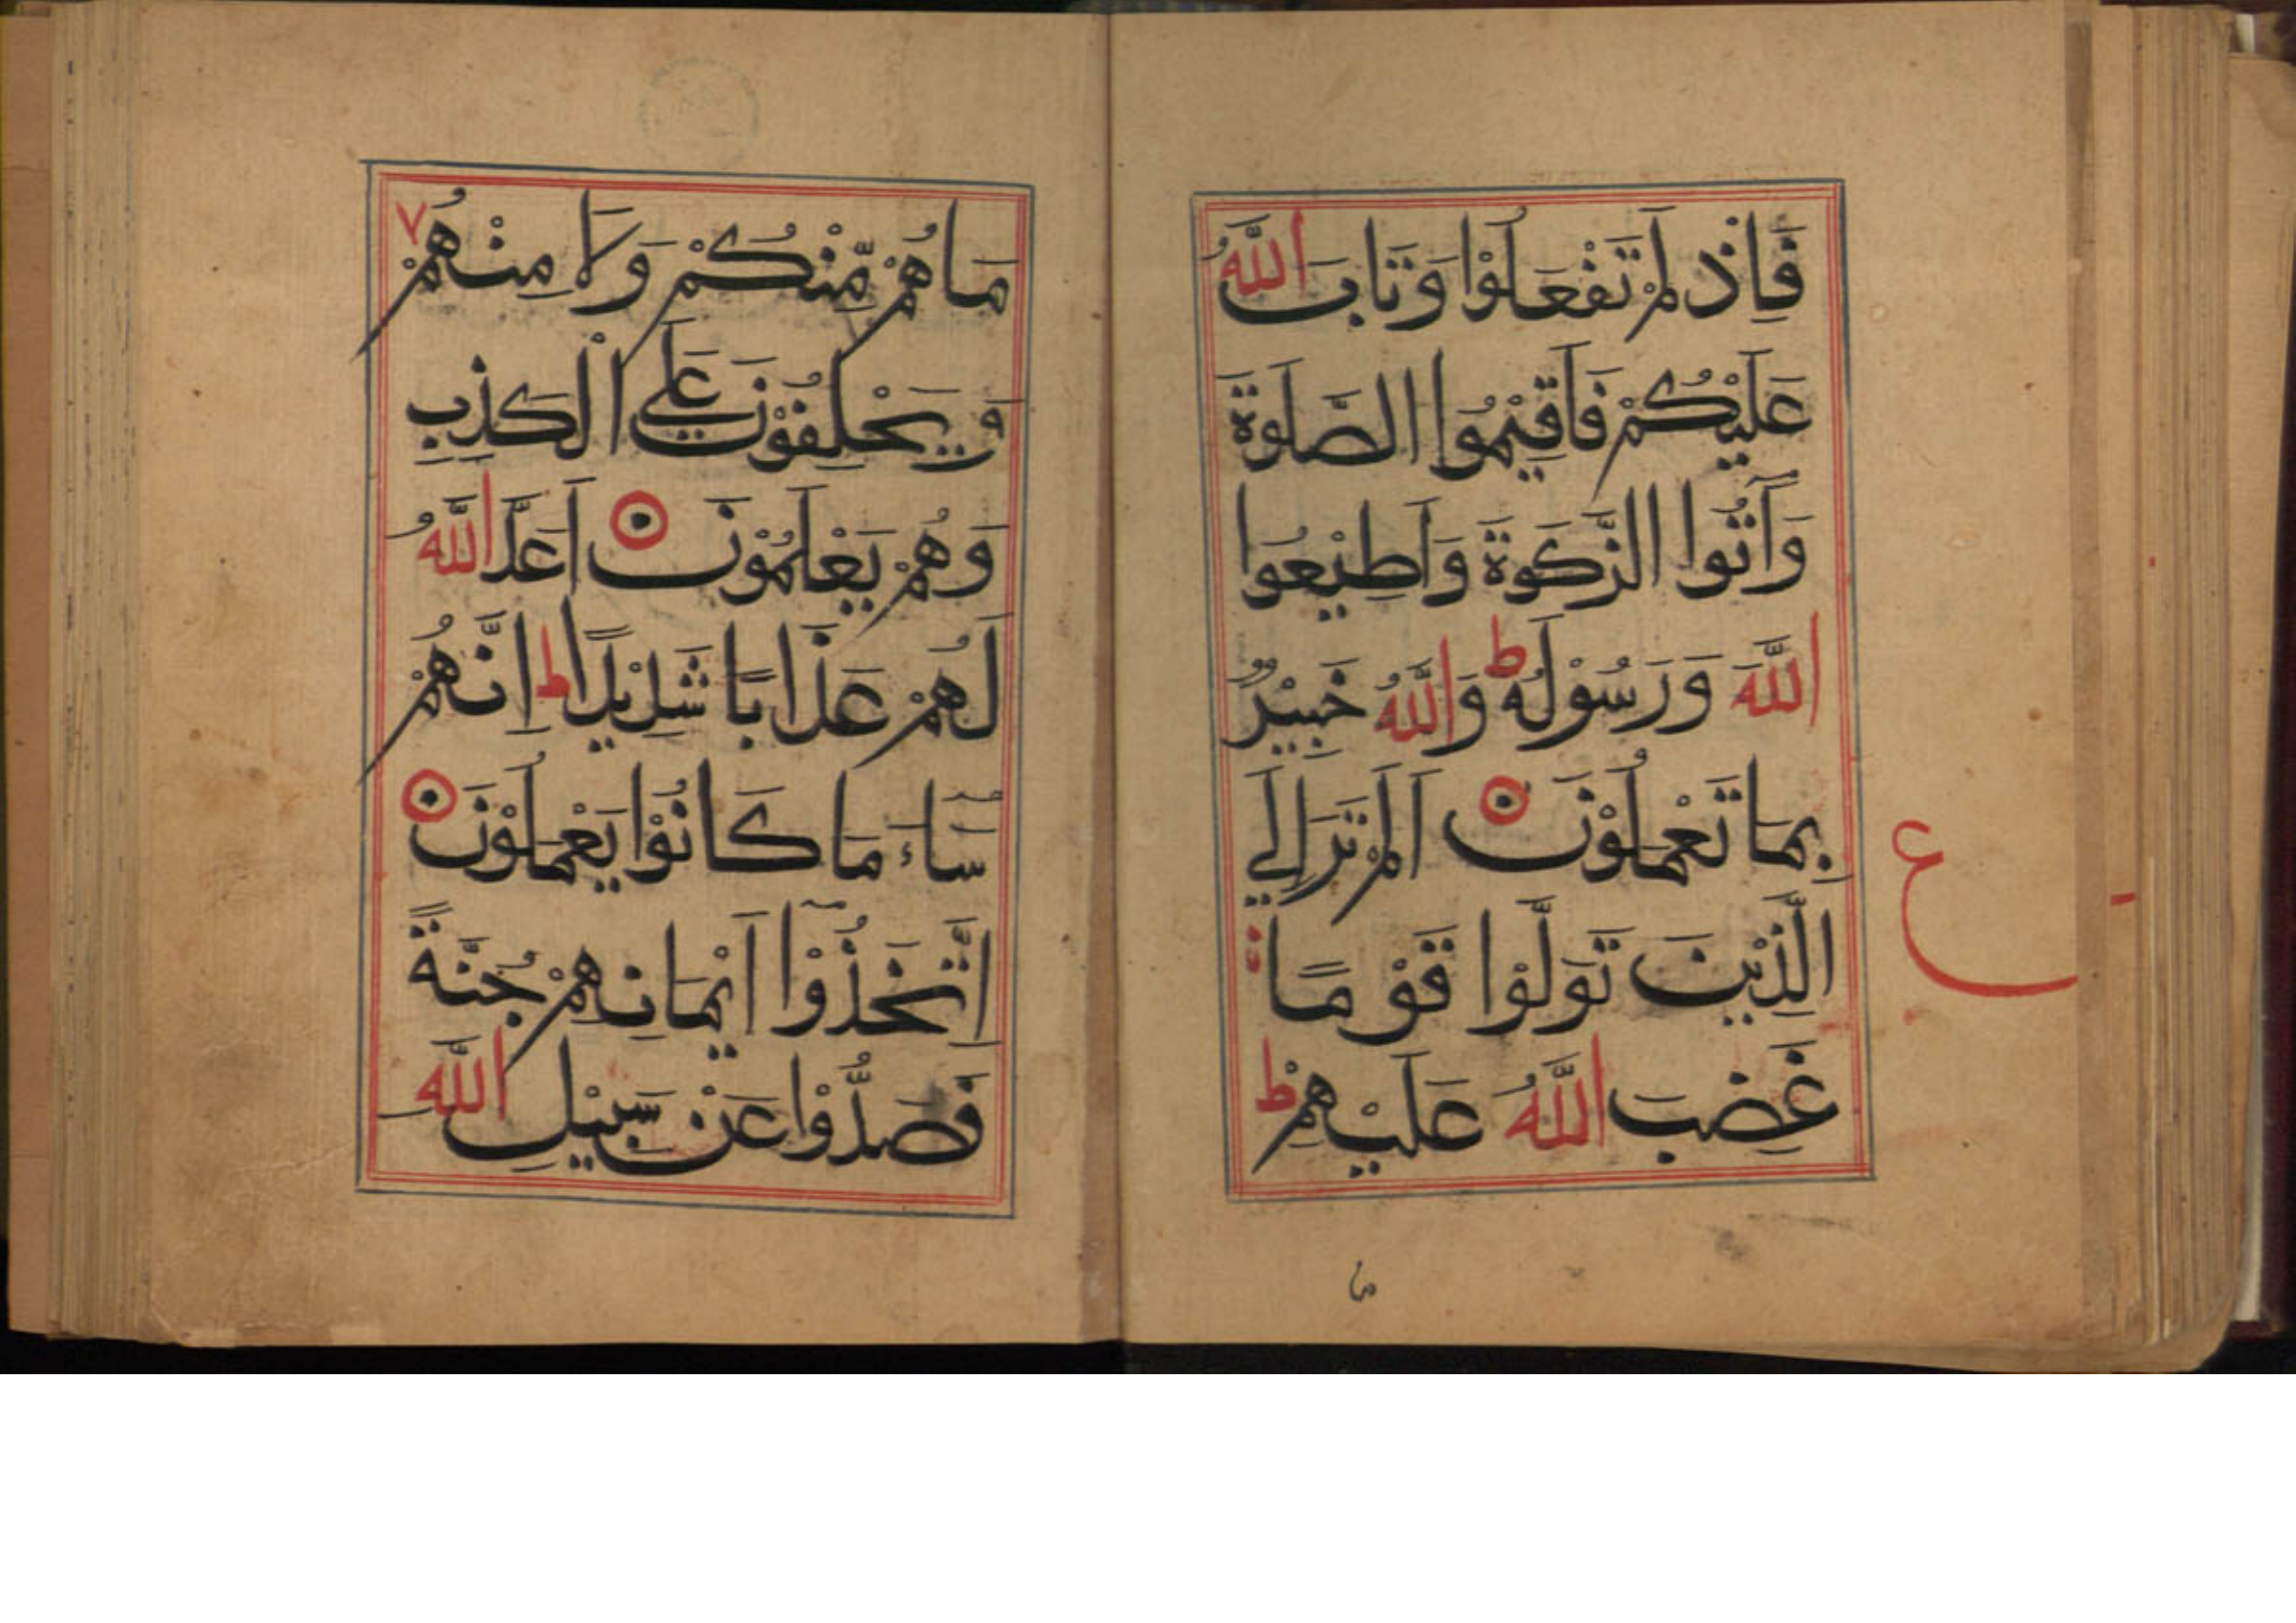 فَاِذْ لَمْ تَفْعَلُوْا وَتَابَ اللّٰهُ
عَلَيْكُمْ فَاَقِيْمُوا الصَّلٰوةَ
وَاٰتُوا الزَّكٰوةَ وَاَطِيْعُوا
اللّٰهَ وَرَسُوْلَهٗ ط وَاللّٰهُ خَبِيْرٌ
بِمَا تَعْمَلُوْنَ اَلَمْ تَرَ اِلَي
الَّذِيْنَ تَوَلَّوْا قَوْمًا
غَضِبَ اللّٰهُ عَلَيْهِمْ ط
ع
مَا هُمْ مِّنْكُمْ وَلَا مِنْهُمْ ٧
وَيَحْلِفُوْنَ عَلَي الْكَذِبِ
وَهُمْ يَعْلَمُوْنَ اَعَدَّ اللّٰهُ
لَهُمْ عَذَابًا شَدِيْدًا ط اِنَّهُمْ
سَآءَ مَا كَانُوْا يَعْمَلُوْنَ
اِتَّخَذُوْٓا اَيْمَانَهُمْ جُنَّةً
فَصَدُّوْا عَنْ سَبِيْلِ اللّٰهِ